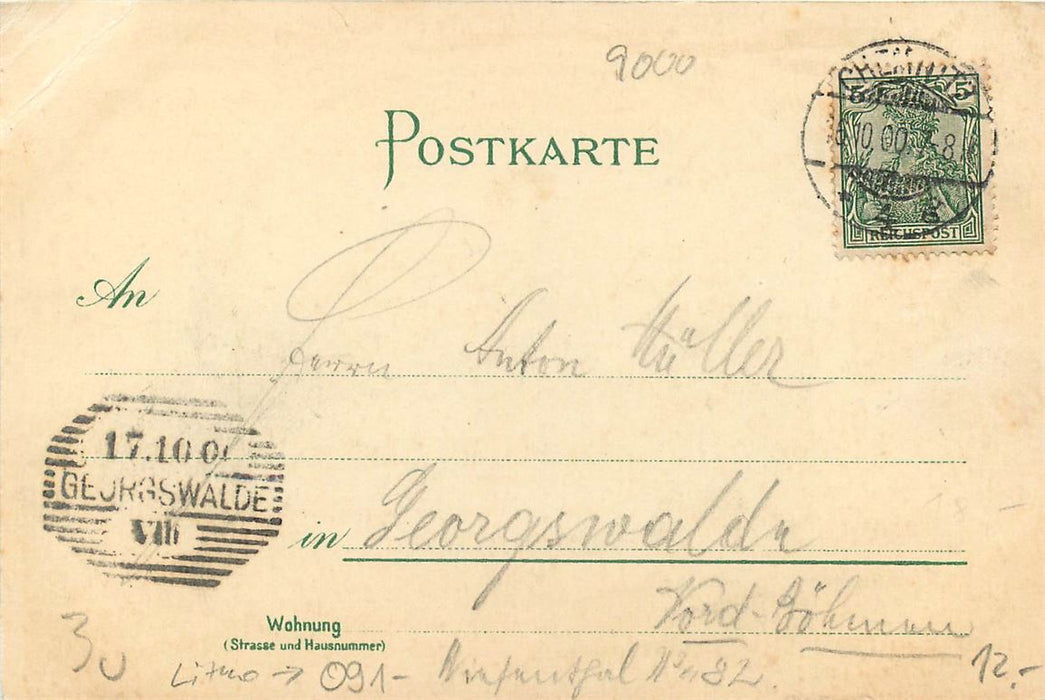 9000
POSTKARTE
CHEMNITZ
10.00
5 5
REICHSPOST
An
Herrn Anton Müller
17.10.00
GEORGSWALDE
in Georgswalde
Nord-Böhmen
Wohnung
(Strasse und Hausnummer)
Wiesenthal No 482.
30
Litho → 091-
12.-